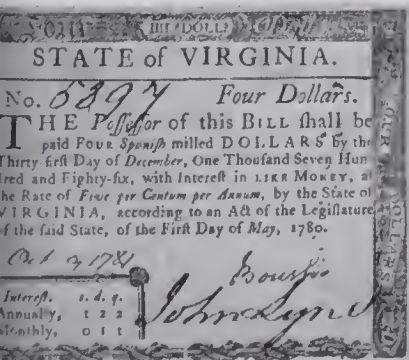 IIII DOLL
STATE of VIRGINIA.
No. 5897 Four Dollars.
THE Poſſeſſor of this BILL ſhall be
paid FOUR Spaniſh milled DOLLARS by the
Thirty-firſt Day of December, One Thouſand Seven Hun
dred and Eighty-ſix, with Intereſt in LIKE MONEY, at
the Rate of Five per Centum per Annum, by the State of
VIRGINIA, according to an Act of the Legiſlature
of the ſaid State, of the Firſt Day of May, 1780.
1781
Intereſt. s. d. q.
Annually, 1 2 2
Monthly, 0 1 1
John